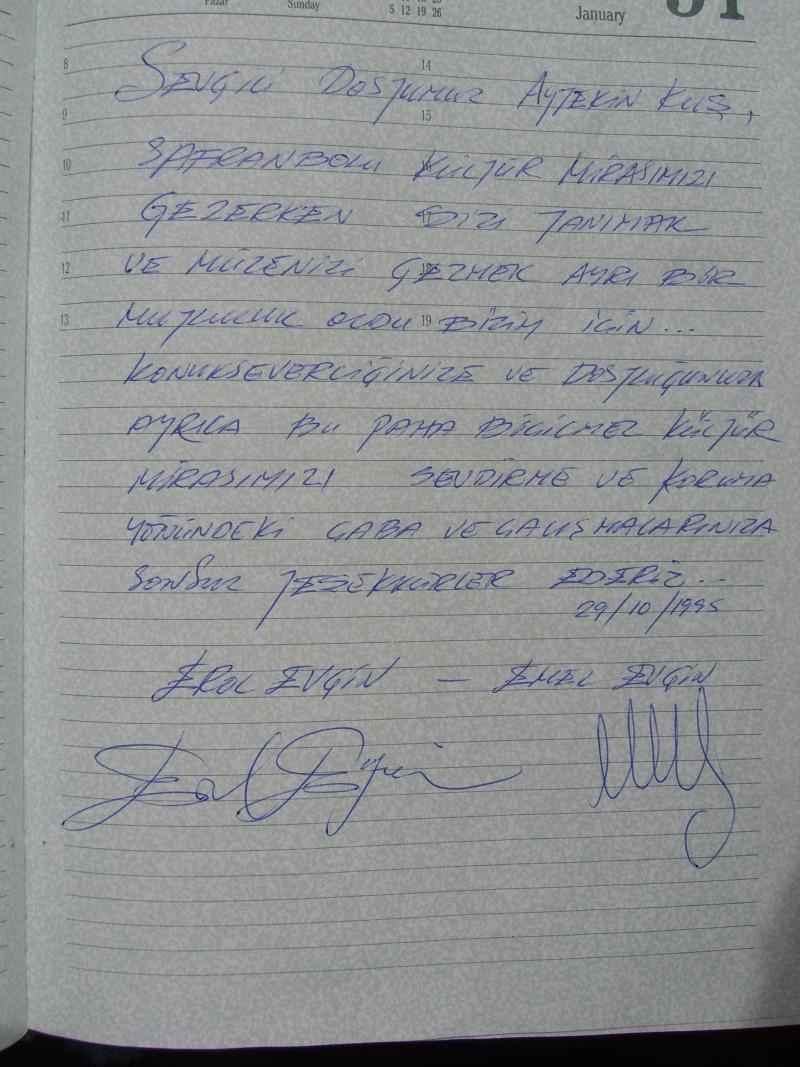 Pazar Sunday 5 12 19 26 January 31
8 14
SEVGİLİ DOSTUMUZ AYTEKİN KUŞ,
9 15
10 SAFRANBOLU KÜLTÜR MİRASIMIZI
11 17 GEZERKEN SİZİ TANIMAK
12 18 VE MÜZENİZİ GEZMEK AYRI BİR
13 19 MUTLULUK OLDU BİZİM İÇİN...
KONUKSEVERLİĞİNİZE VE DOSTLUĞUNUZA
AYRICA BU PAHA BİÇİLMEZ KÜLTÜR
MİRASIMIZI SEVDİRME VE KORUMA
YÖNÜNDEKİ ÇABA VE ÇALIŞMALARINIZA
SONSUZ TEŞEKKÜRLER EDERİZ...
29/10/1995
EROL EVGİN — EMEL EVGİN
Erol Evgin